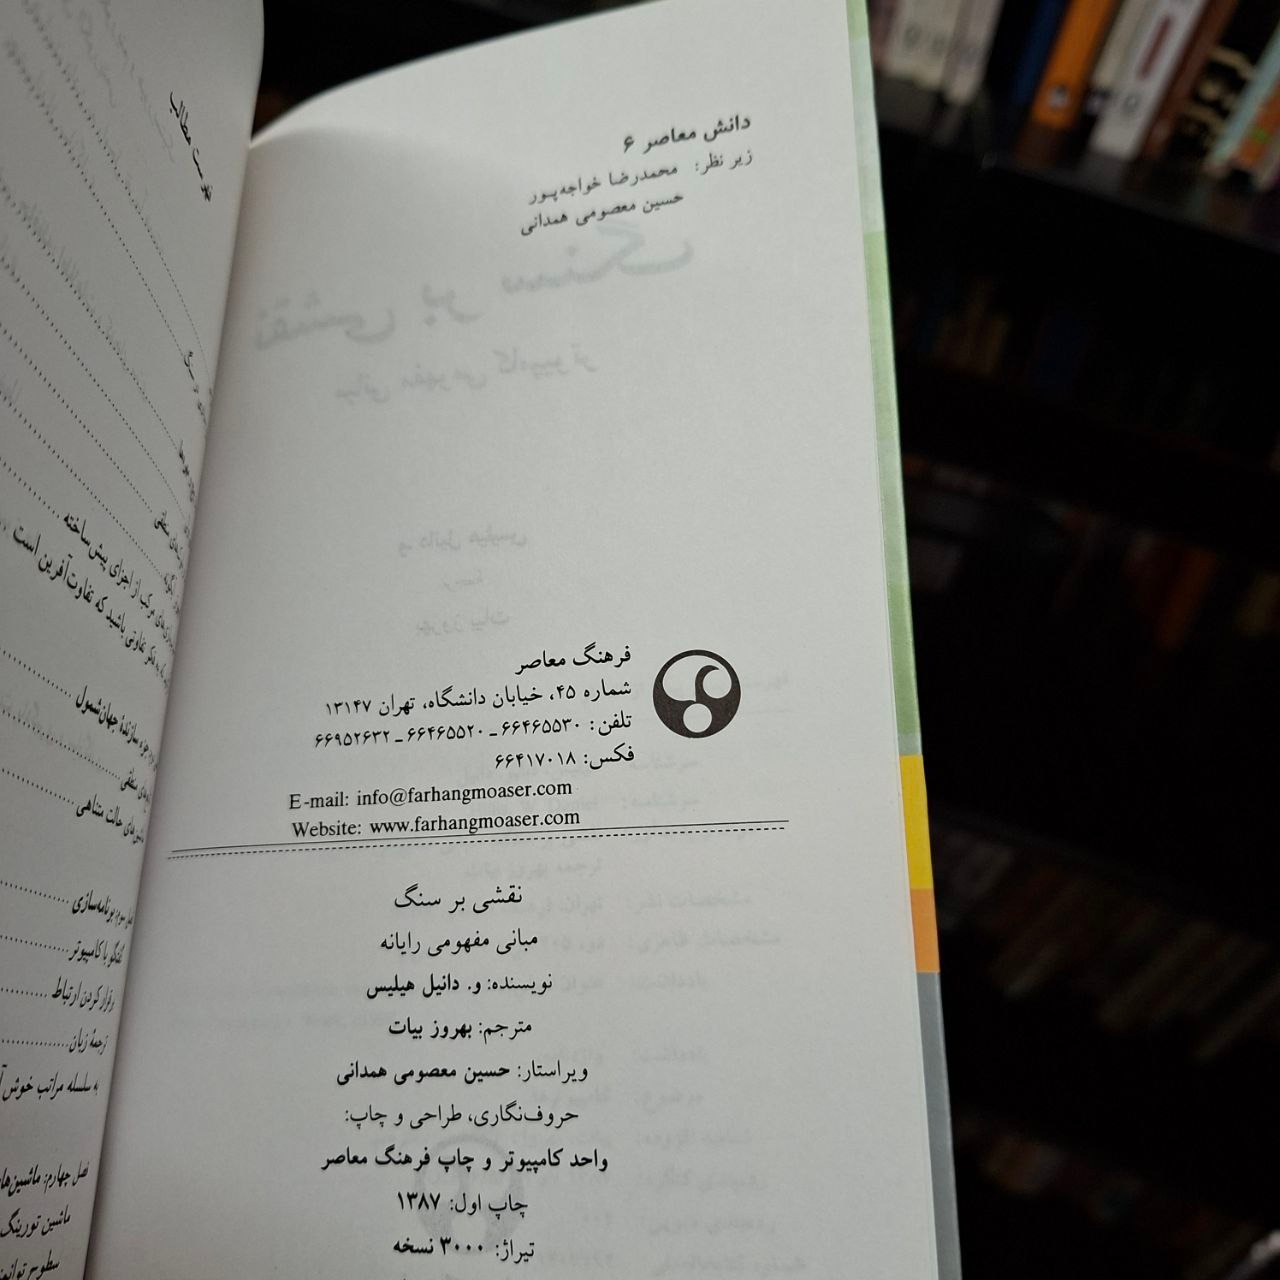 دانش معاصر ۶
زیر نظر: محمدرضا خواجه‌پور
حسین معصومی همدانی
فرهنگ معاصر
شماره ۴۵، خیابان دانشگاه، تهران ۱۳۱۴۷
تلفن: ۶۶۴۶۵۵۳۰ ـ ۶۶۴۶۵۵۲۰ ـ ۶۶۹۵۲۶۳۲
فکس: ۶۶۴۱۷۰۱۸
E-mail: info@farhangmoaser.com
Website: www.farhangmoaser.com
نقشی بر سنگ
مبانی مفهومی رایانه
نویسنده: و. دانیل هیلیس
مترجم: بهروز بیات
ویراستار: حسین معصومی همدانی
حروف‌نگاری، طراحی و چاپ:
واحد کامپیوتر و چاپ فرهنگ معاصر
چاپ اول: ۱۳۸۷
تیراژ: ۳۰۰۰ نسخه
مطالب
مرکب از اجزای پیش‌ساخته
تفاوتی باشید که تفاوت‌آفرین است
سازندهٔ جهان‌شمول
منطقی
حالت متناهی
برنامه‌سازی
گفتگو با کامپیوتر
برقرار کردن ارتباط
ترجمهٔ زبان
به سلسله مراتب خوش
فصل چهارم: ماشین‌های
ماشین تورینگ
سطوح